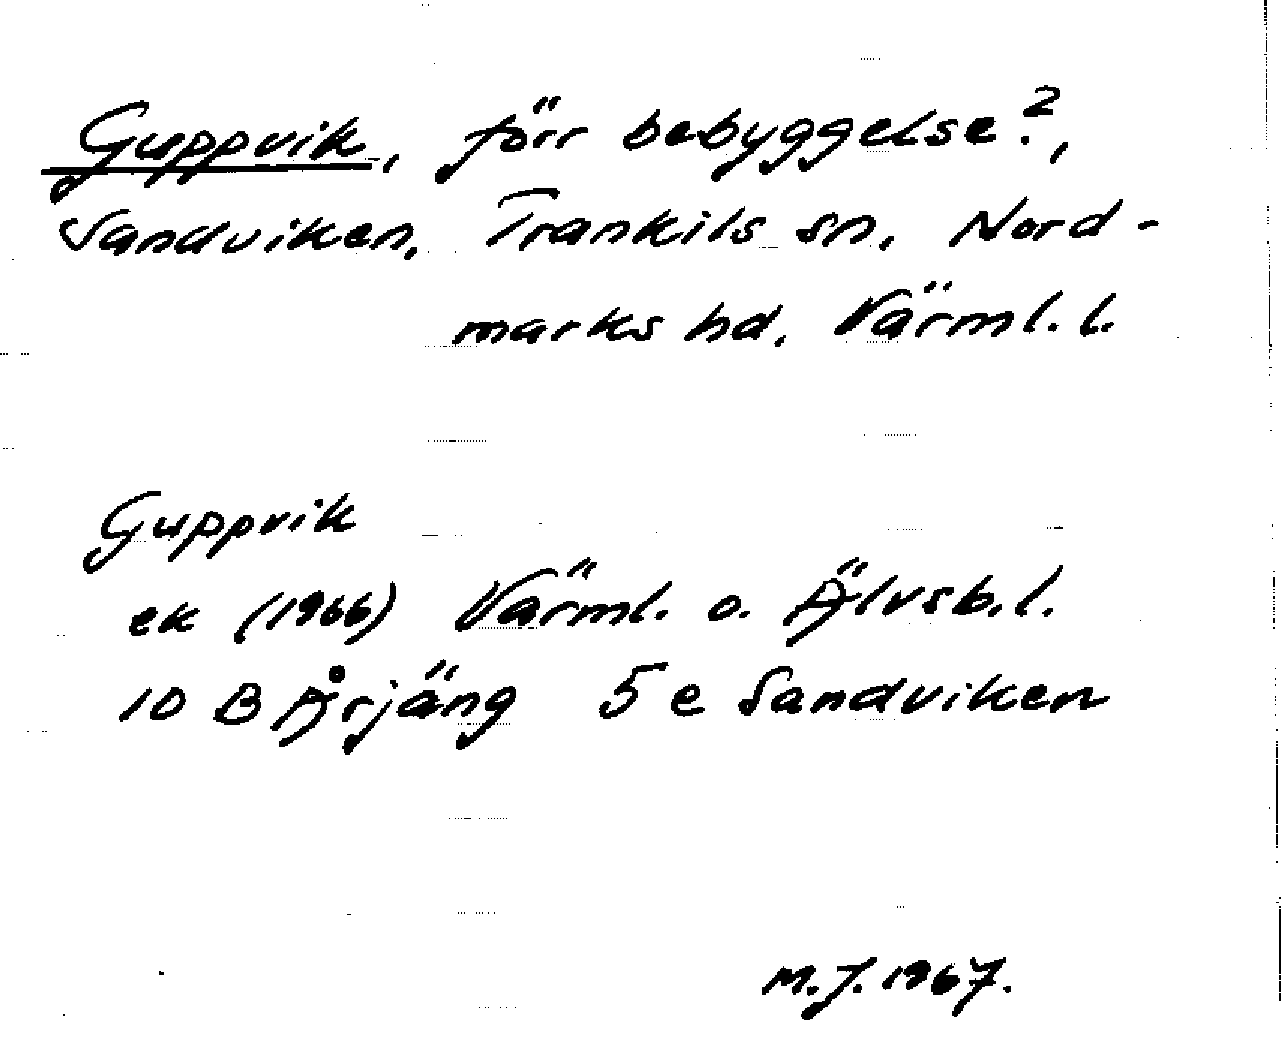 Guppvik, förr bebyggelse?,
Sandviken, Trankils sn, Nord-
marks hd, Värml. l.
Guppvik
ek (1966) Värml. o. Älvsb. l.
10 B Årjäng 5 e Sandviken
M.J. 1967.